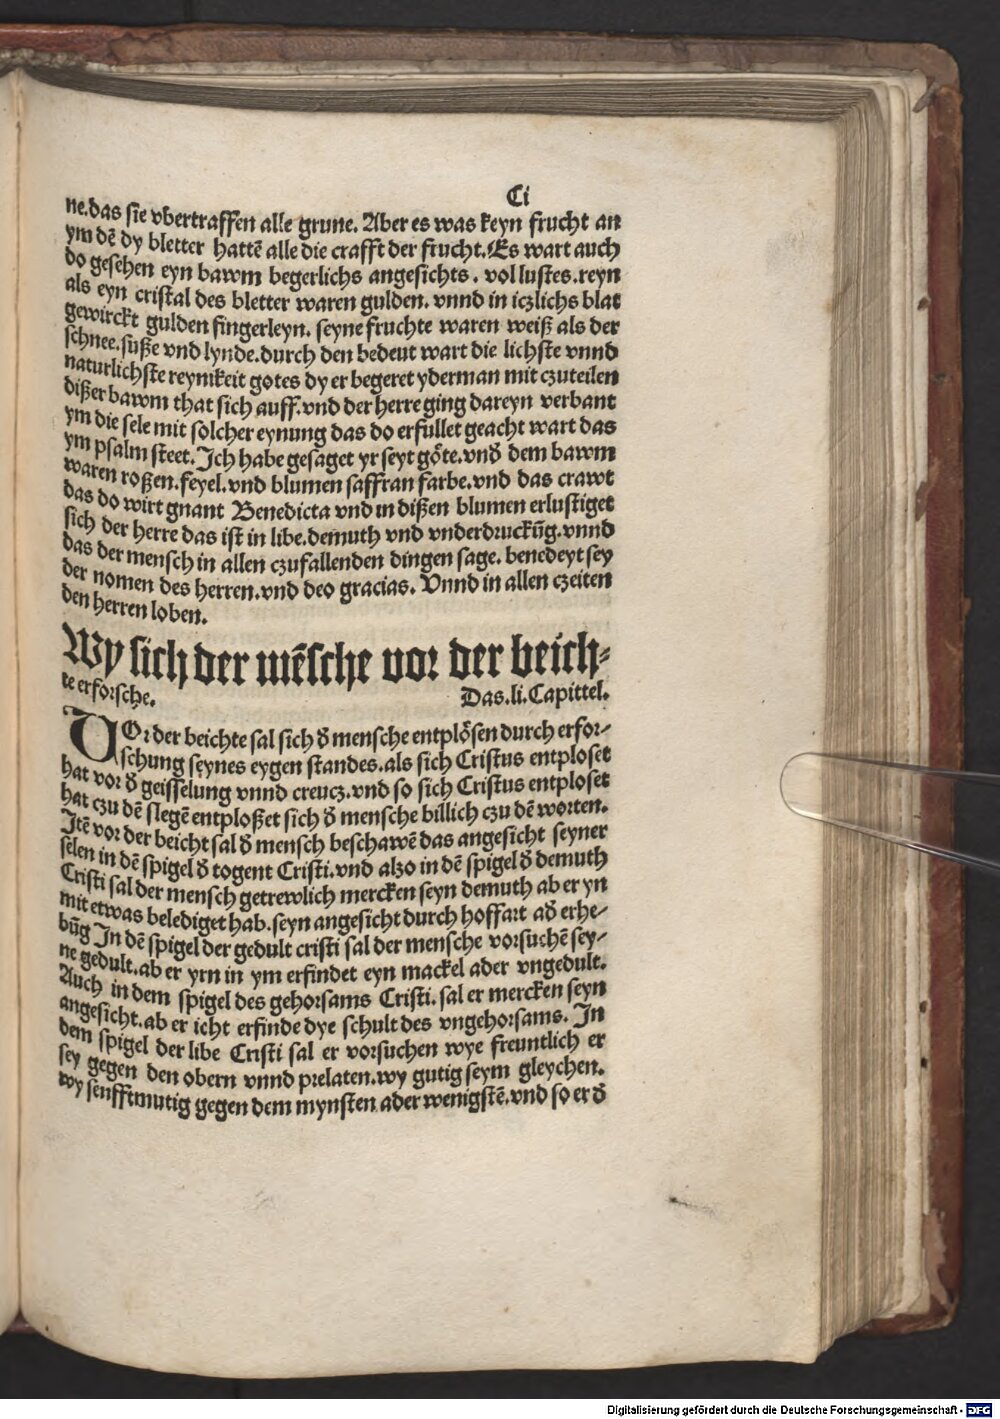 Ci
ne.das sie vbertraffen alle grune. Aber es was keyn frucht an
ym dē dy bletter hattē alle die crafft der frucht.Es wart auch
do gesehen eyn bawm begerlichs angesichts. vol lustes.reyn
als eyn cristal des bletter waren gulden. vnnd in iczlichs blat
gewirckt gulden fingerleyn. seyne fruchte waren weiß als der
schnee.suße vnd lynde.durch den bedeut wart die lichste vnnd
naturlichste reynikeit gotes dy er begeret yderman mit czuteilen
dißer bawm that sich auff.vnd der herre ging dareyn verbant
ym die sele mit solcher eynung das do erfullet geacht wart das
ym psalm steet.Ich habe gesaget yr seyt göte.vnď dem bawm
waren roßen.feyel.vnd blumen saffran farbe.vnd das crawt
das do wirt gnant Benedicta vnd in dißen blumen erlustiget
sich der herre das ist in libe.demuth vnd vnderdruckūg.vnnd
das der mensch in allen czufallenden dingen sage. benedeyt sey
der nomen des herren.vnd deo gracias. Vnnd in allen czeiten
den herren loben.
Wy sich der mēsche vor der beich-
te erforsche. Das.li.Capittel.
VOr der beichte sal sich ď mensche entplösen durch erfor-
schung seynes eygen standes.als sich Cristus entploset
hat vor ď geisselung vnnd creucz.vnd so sich Cristus entploset
hat czu dē slegē entploßet sich ď mensche billich czu dē worten.
Itē vor der beicht sal ď mensch beschawē das angesicht seyner
selen in dē spigel ď togent Cristi.vnd alzo in dē spigel ď demuth
Cristi sal der mensch getrewlich mercken seyn demuth ab er yn
mit etwas belediget hab.seyn angesicht durch hoffart aď erhe-
būg In dē spigel der gedult cristi sal der mensche vorsuchē sey-
ne gedult.ab er yrn in ym erfindet eyn mackel ader vngedult.
Auch in dem spigel des gehorsams Cristi. sal er mercken seyn
angesicht.ab er icht erfinde dye schult des vngehorsams. In
dem spigel der libe Cristi sal er vorsuchen wye freuntlich er
sey gegen den obern vnnd prelaten.wy gutig seym gleychen.
wy senfftmutig gegen dem mynsten ader wenigstē.vnd so er ď
Digitalisierung gefördert durch die Deutsche Forschungsgemeinschaft - DFG